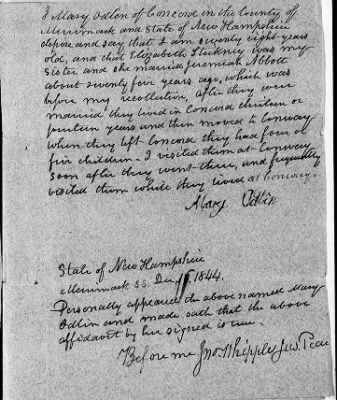 I Mary Odlin of Concord in the County of
Merrimack and State of New Hampshire
depose and say that I am seventy eight years
old, and that Elizabeth Stickney was my
Sister and she married Jeremiah Abbott
about seventy five years ago, which was
before my recollection, after they were
married they lived in Concord thirteen or
fourteen years and then moved to Conway
when they left Concord they had four or
five children. I visited them at Conway
soon after they went there, and frequently
visited them while they lived at Conway.
Mary Odlin
State of New Hampshire
Merrimack SS Dec 1844.
Personally appeared the above named Mary
Odlin and made oath that the above
affidavit by her signed is true.
Before me Jno Whipple Jus. Peace